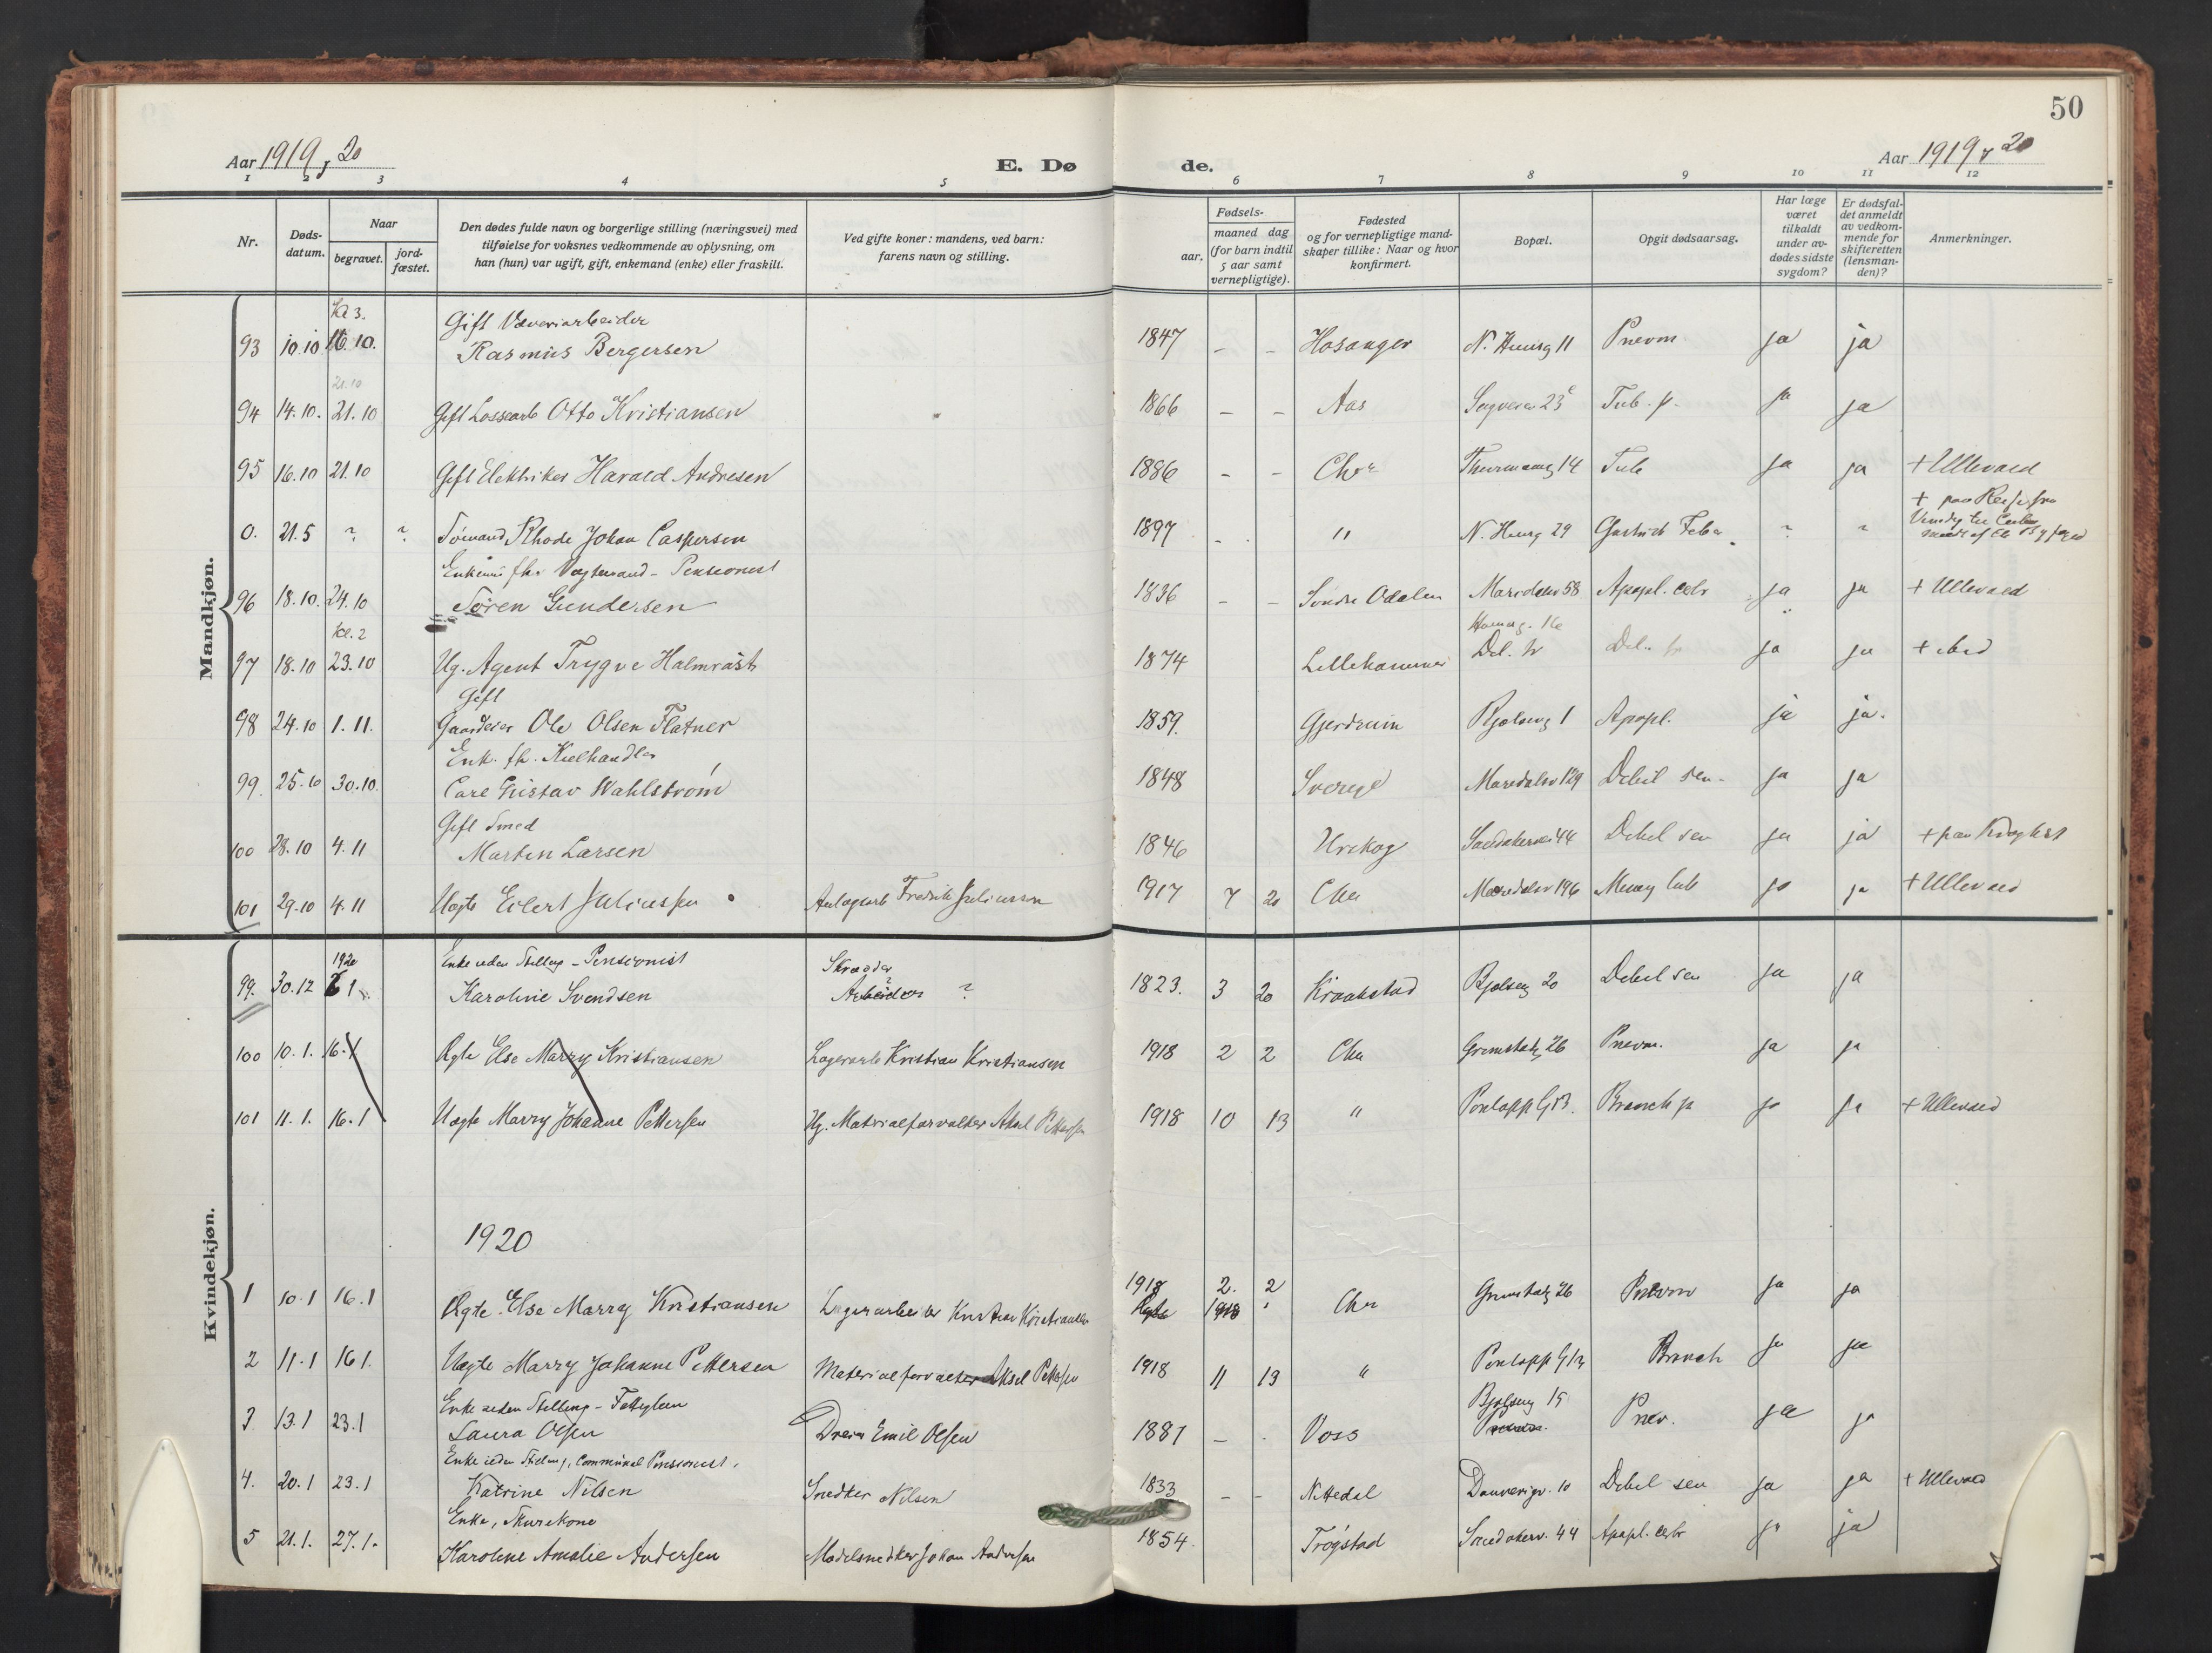 50
Aar 1919, 20
E. Døde.
Aar 1919, 20
1 2 3 4 5 6 7 8 9 10 11 12
Nr.
Døds-datum.
Naar
begravet.
jord-fæstet.
Den dødes fulde navn og borgerlige stilling (næringsvei) med
tilføielse for voksnes vedkommende av oplysning, om
han (hun) var ugift, gift, enkemand (enke) eller fraskilt.
Ved gifte koner: mandens, ved barn:
farens navn og stilling.
Fødsels-
aar.
maaned dag
(for barn indtil
5 aar samt
vernepligtige).
Fødested
og for vernepligtige mand-
skaper tillike: Naar og hvor
konfirmert.
Bopæl.
Opgit dødsaarsag.
Har læge
været
tilkaldt
under av-
dødes sidste
sygdom?
Er dødsfal-
det anmeldt
av vedkom-
mende for
skifteretten
(lensman-
den)?
Anmerkninger.
Mandkjøn.
Kl 3.
Gift Væveriarbeider
93 10.10 16.10. Rasmus Bergersen 1847 – – Hosanger 11 Pnevm ja ja
21.10
94 14.10. 21.10 Gift Lossearb Otto Kristiansen 1866 – – Aas Sagveien 23 Tub. p. ja ja
95 16.10 21.10 Gift Elektriker Harald Andresen 1886 – – Chr Thurmanng 14 Tub ja ja + Ullevaal
0. 21.5 ? ? Sømand Rhode Johan Caspersen 1897 – " 29 ? ?
Pensionist
96 18.10. 24.10 Søren Gundersen 1836 – – Søndre Odalen Maridalsv 58 Apopl. cebr ja ja + Ullevaal
Kl. 2
97 18.10 23.10 Ug. Agent Trygve Halmrast 1874 Lillehammer ja ja + ibid
Gift
98 24.10 1.11. Gaardeier Ole Olsen Flatner 1859. Gjerdrum 1 Apopl. ja ja.
Enk. fh. Kulhandler
99. 25.10 30.10. Carl Gustav Wahlstrøm 1848 Sverige Maridalsv 129 Debil sen. ja ja
Gift Smed
100 28.10 4.11 Martin Larsen 1846 Urskog Sandakerv 44 Debil sen ja ja
101 29.10 4.11 Uægte Eilert Juliussen Anlægsarb Fredrik Juliussen 1917 7 20 Chra Maridalsv 196 ja ja + Ullevaal
Kvindekjøn.
1920
Enke uden Stilling – Pensionist Skrædder
99. 30.12 1 Karoline Svendsen Arbeider ? 1823. 3 20 Kraakstad 20 Debil sen ja ja
100 10.1. 16.1 Ægte Else Marry Kristiansen Lagerarb Kristian Kristiansen 1918 2 2 Chra Grimstadg 26 Pnevm. ja ja
101 11.1. 16.1 Uægte Marry Johanne Pettersen Ug. Materialforvalter Aksel Pettersen 1918 10 13 " Bronch p ja ja + Ullevaal
1920
1 10.1 16.1 Ægte Else Marry Kristiansen Lagerarbeider Kristian Kristiansen 1918 2. 2 Chra Grimstadg 26 Pnevm ja ja
2 11.1 16 1. Uægte Marry Johanne Pettersen Materialforvalter Aksel Pettersen 1918 11 13 " Bronch ja ja
Enke uden Stilling –
3 13.1 23.1 Laura Olsen Dreier Emil Olsen 1881 – . Voss 15 Pnev. ja ja
Enke uden Stilling, Communal Pensionist.
4. 20.1 23.1 Katrine Nilsen Snedker Nilsen 1833 – – Nittedal 10 Debil sen ja ja + Ullevaal
Enke, Skurekone
5 21.1. 27.1. Karoline Amalie Andersen Modelsnedker Johan Andersen 1854. Trøgstad Sandakerv. 44 Apopl. cebr ja ja